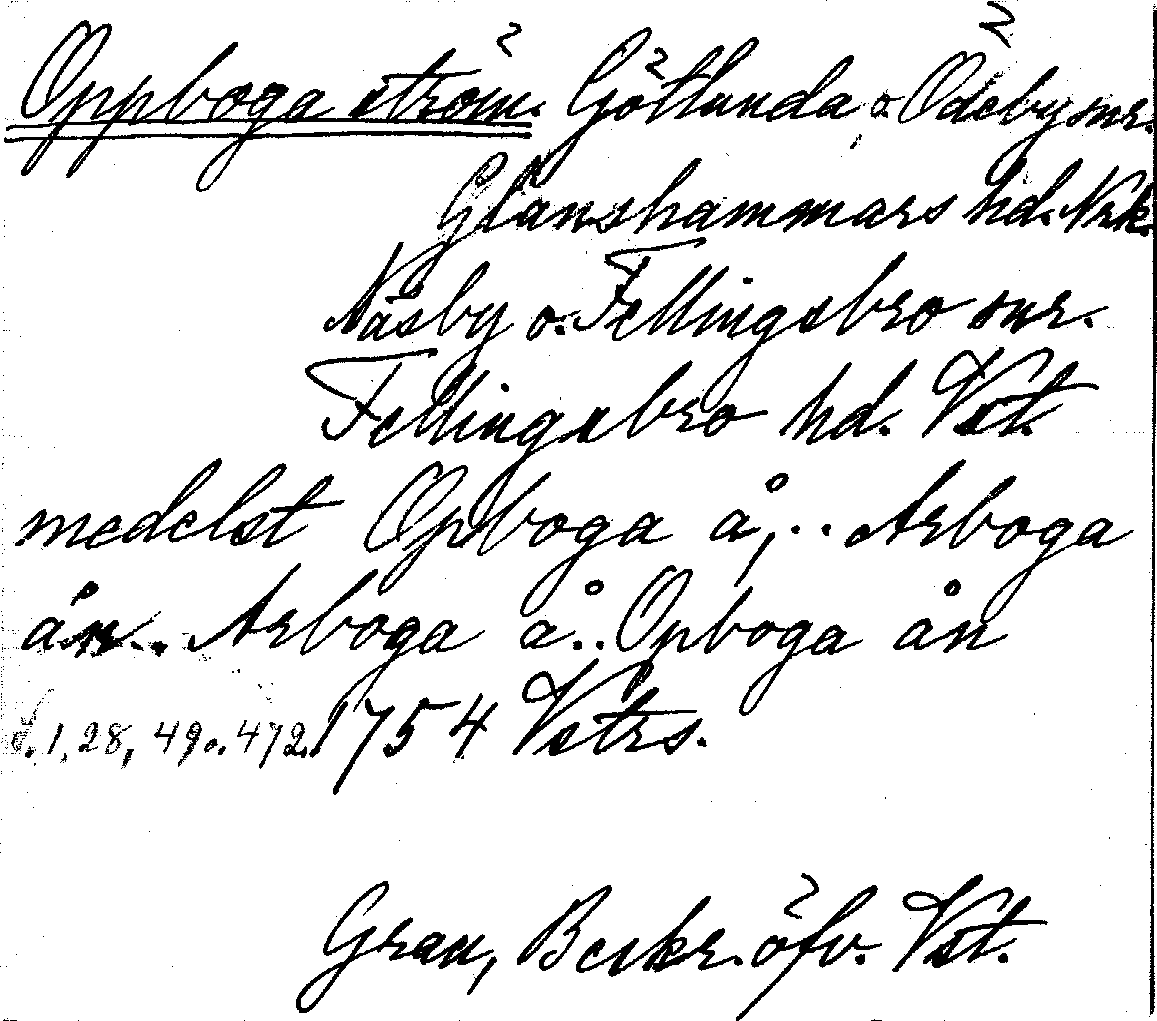 Oppboga ström. Götlunda o. Ödeby snr.
Glanshammars hd. Nrk.
Näsby o. Fellingsbro snr.
Fellingsbro hd. Vst.
medelst Opboga å, .. Arboga
ån.. Arboga å.. Opboga ån
S. 1, 28, 49 o. 472. 1754 Vstrs.
Grau, Beskr. öfv. Vst.